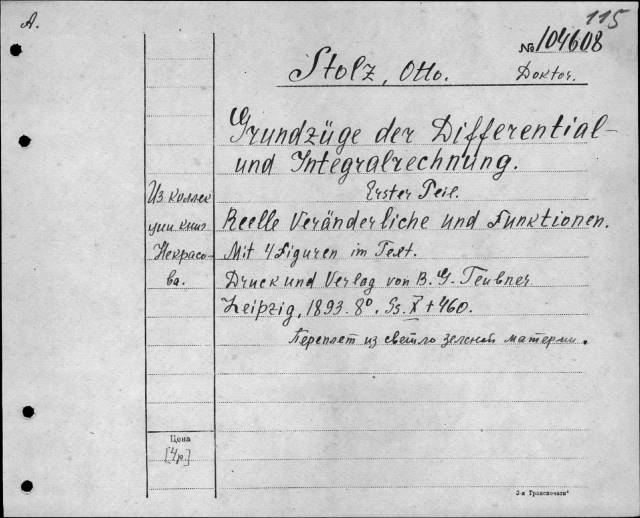 A.
115
№ 104608
Stolz, Otto.
Doktor.
Grundzüge der Differential-
und Integralrechnung.
Erster Teil.
Из коллек
ции книг
Некрасо-
ва.
Reelle Veränderliche und Funktionen.
Mit 4 Figuren im Text.
Druck und Verlag von B. G. Teubner
Leipzig, 1893. 8°. Ss. X + 460.
Переплет из светло зеленой материи.
Цена
[4р.]
3-я Транспечать